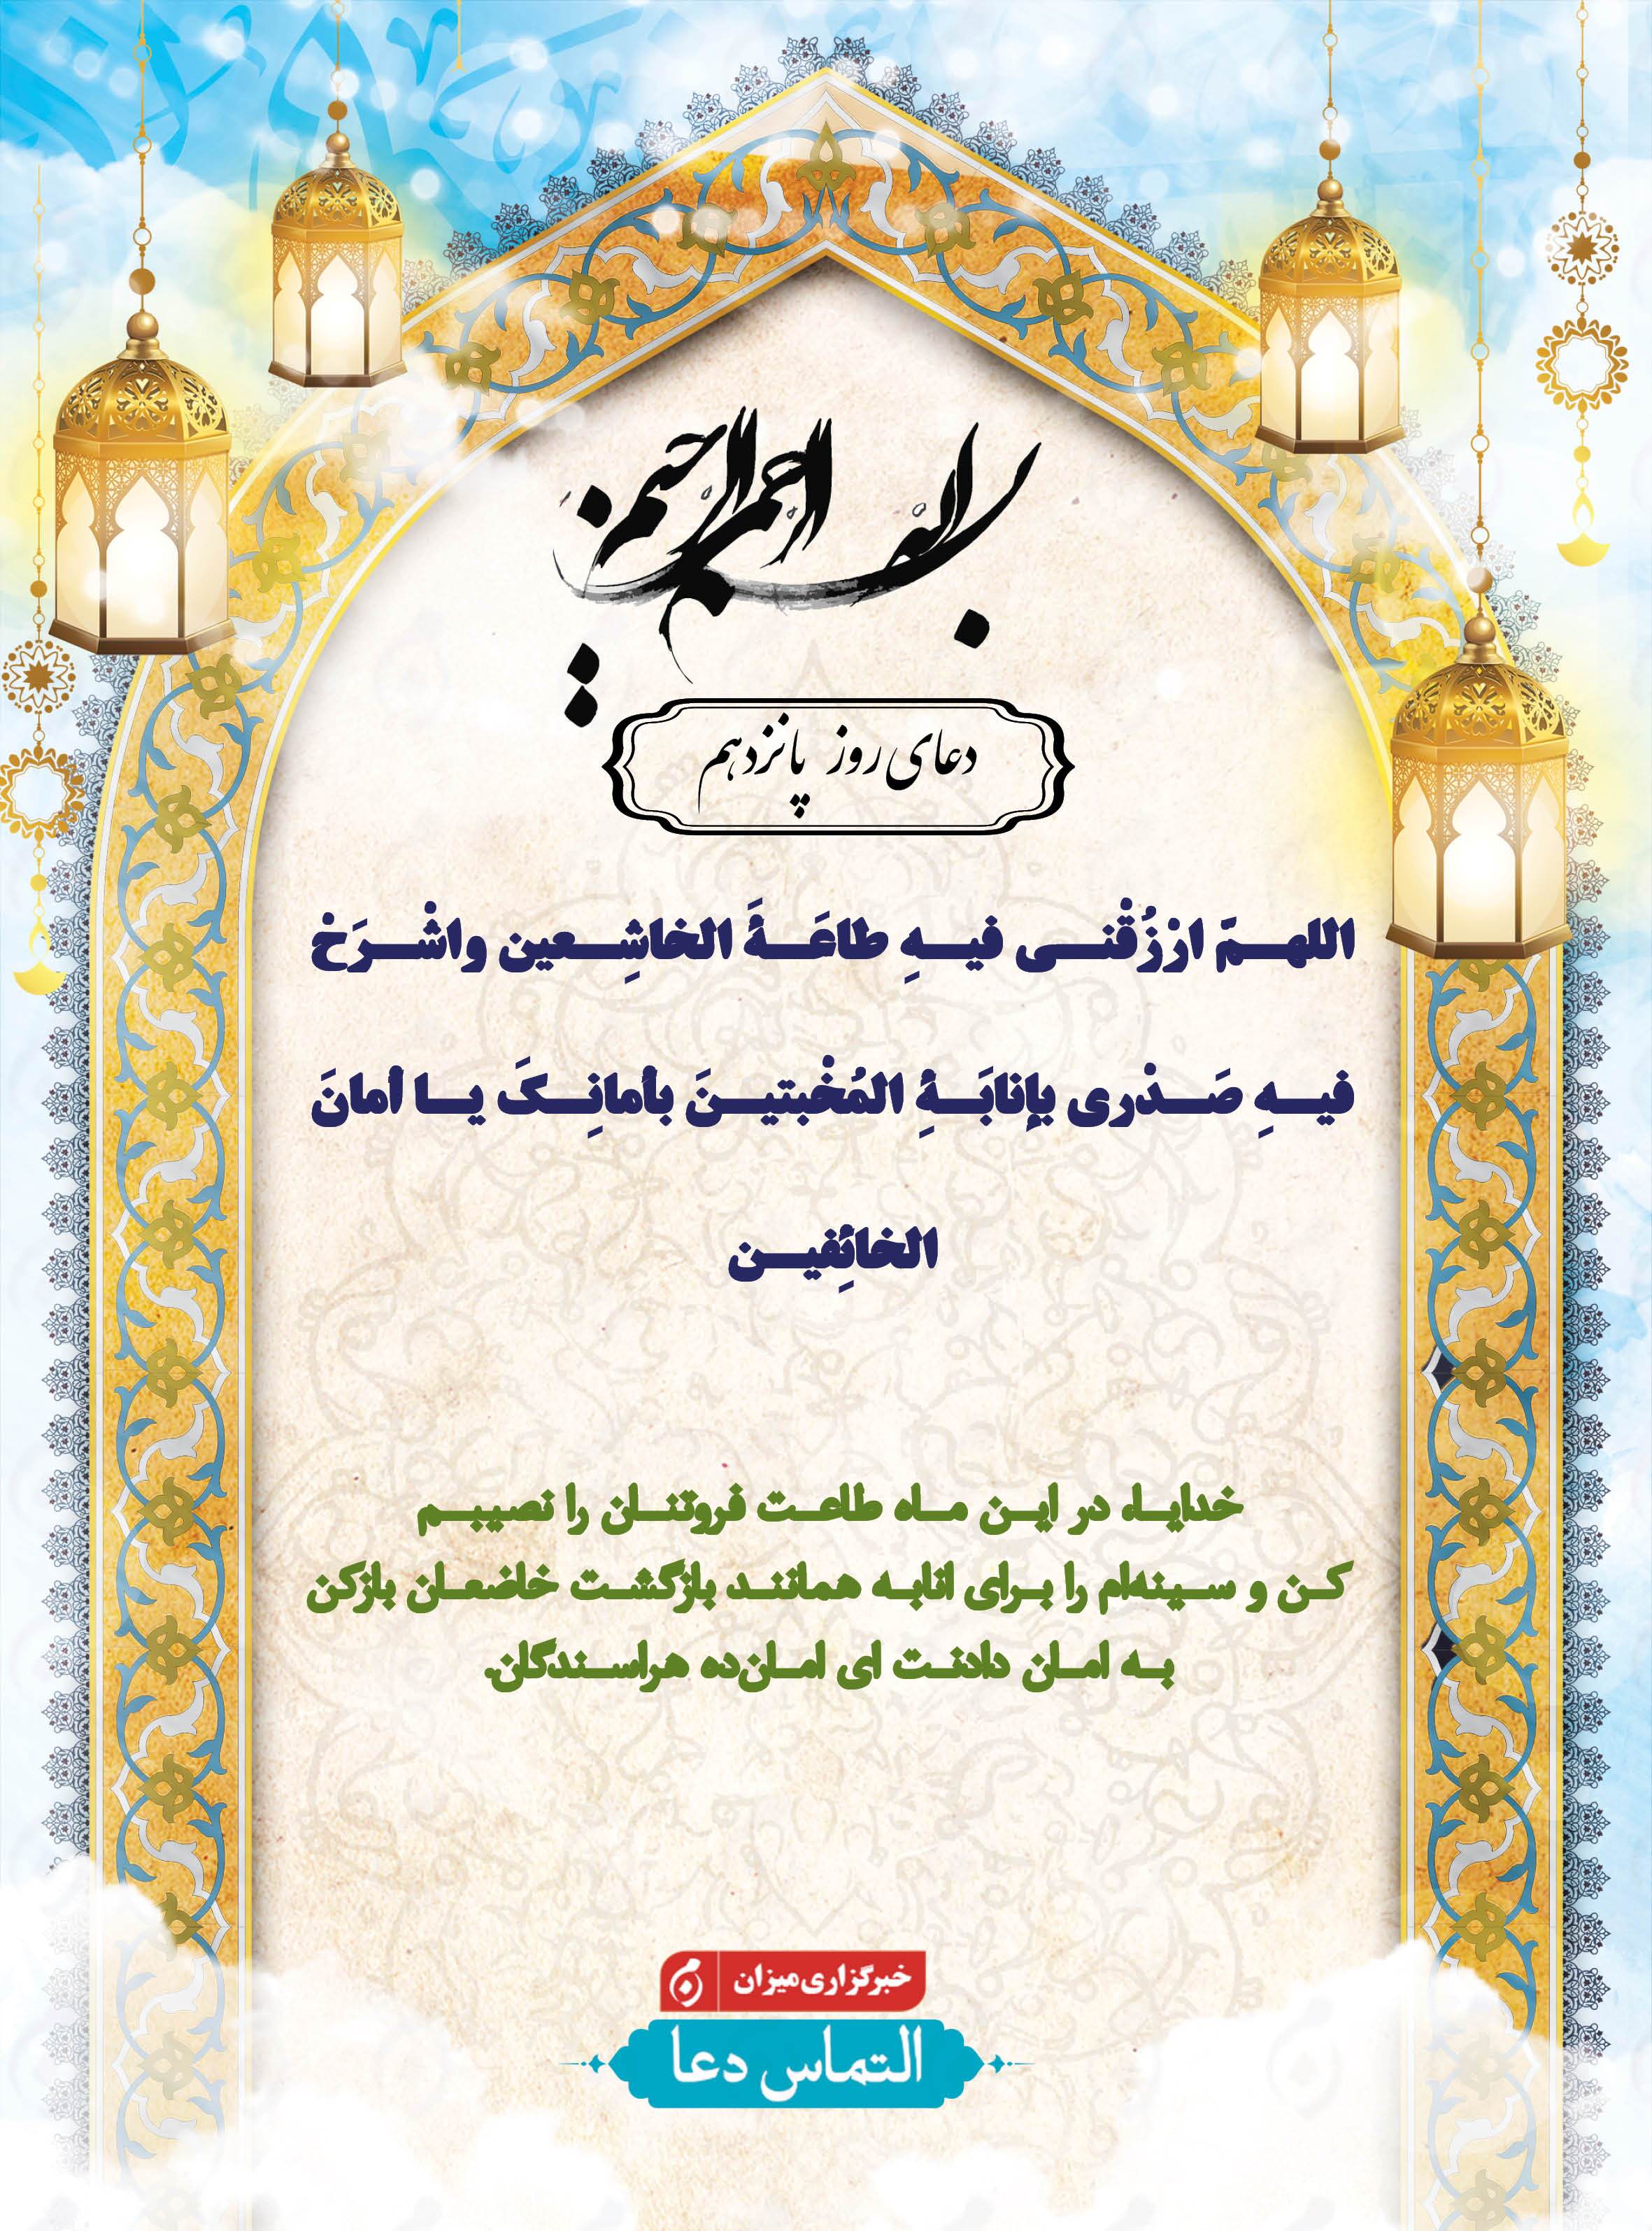 بسم الله الرحمن الرحیم
دعای روز پانزدهم
اللهمّ ارْزُقْنی فیهِ طاعَةَ الخاشِعین واشْرَحْ
فیهِ صَدْری بإنابَةِ المُخْبتینَ بأمانِکَ یا أمانَ
الخائِفین
خدایا، در این ماه طاعت فروتنان را نصیبم
کن و سینه‌ام را برای انابه همانند بازگشت خاضعان بازکن
به امان دادنت ای امان‌ده هراسندگان.
خبرگزاری میزان
التماس دعا